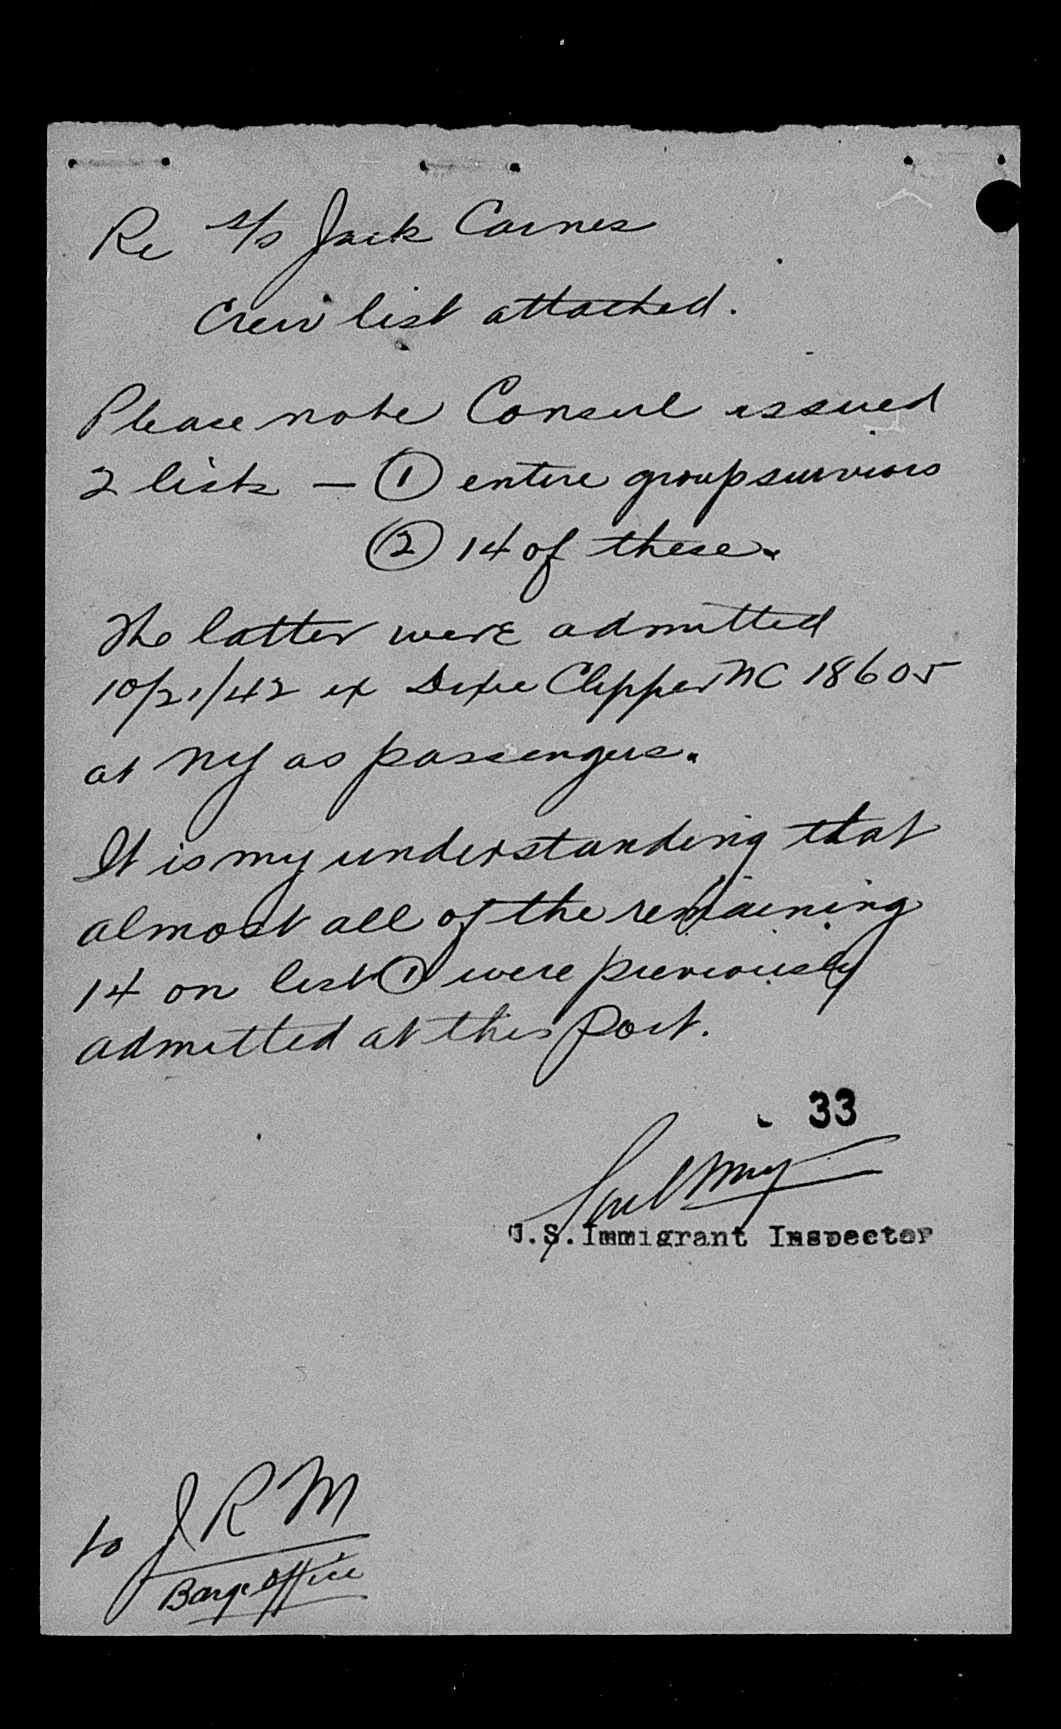 Re s/s Jack Carnes
Crew list attached.
Please note Consul issued
2 lists — ① entire group survivors
② 14 of these.
The latter were admitted
10/21/42 ex Dixie Clipper NC 18605
at NY as passengers.
It is my understanding that
almost all of the remaining
14 on list ① were previously
admitted at this port.
33
U.S. Immigrant Inspector
to J R M
Barge Office